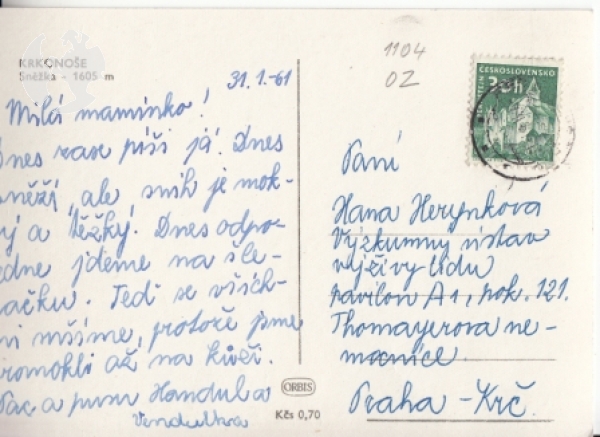 KRKONOŠE
Sněžka - 1605 m
31.1.-61
Milá maminko!
Dnes zase píši já. Dnes
sněží, ale sníh je mok-
rý a těžký. Dnes odpo-
ledne jdeme na šle-
hačku. Teď se vších-
ni
protože jsme
promokli až na kůži.
Pac a pusu Handula
Vendulka
ORBIS
Kčs 0,70
1104
OZ
ČESKOSLOVENSKO
Paní
Hana Herynková
Výzkumný ústav
výživy lidu
pavilon A1, pok. 121.
Thomayerova ne-
mocnice.
Praha - Krč.